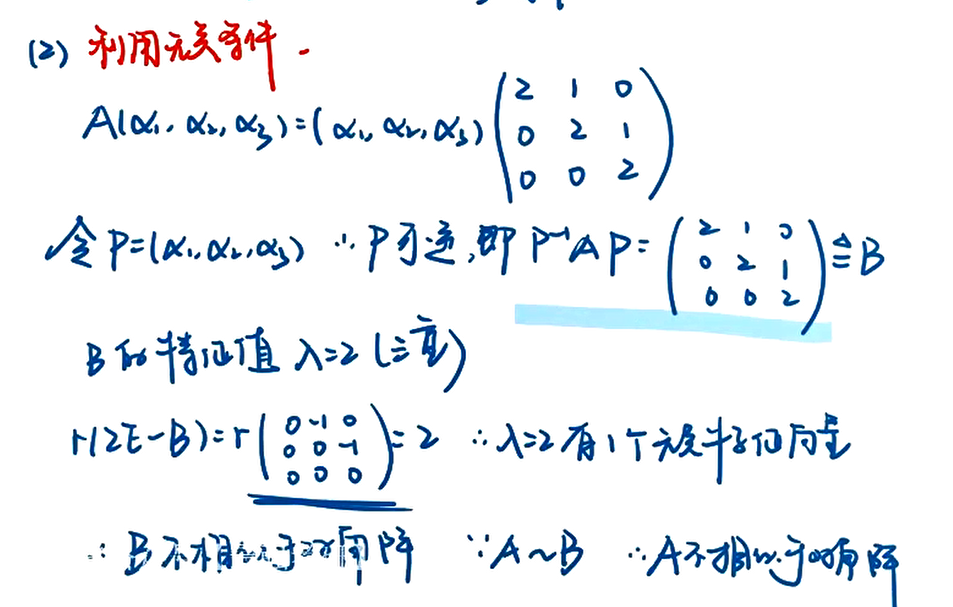 (2) 利用无关条件.
A(α₁, α₂, α₃)=(α₁, α₂, α₃) (2 1 0
0 2 1
0 0 2)
令P=(α₁, α₂, α₃) ∵P可逆,即 P⁻¹AP= (2 1 0
0 2 1
0 0 2) ≜ B
B的特征值 λ=2 (三重)
r(2E-B)=r (0 -1 0
0 0 -1
0 0 0) =2 ∴λ=2有1个无关特征向量
∴B不相似于对角阵 ∵A~B ∴A不相似于对角阵